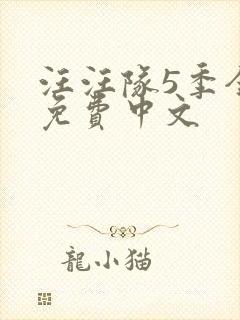 汪汪隊5季全
免費中文
龍小猫